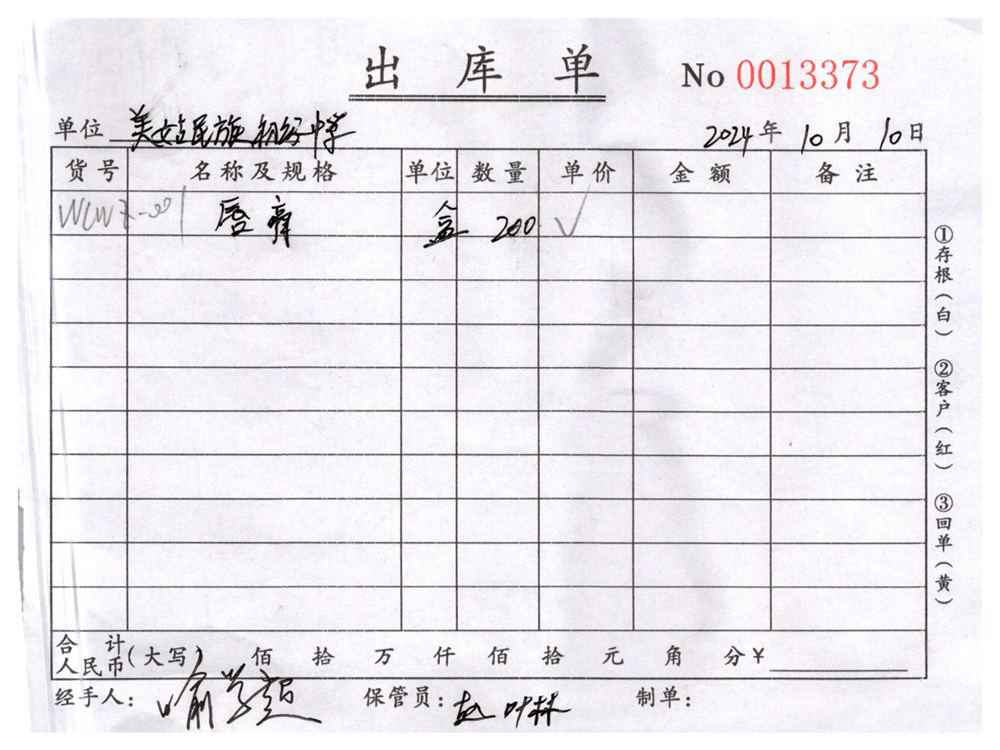 出库单 No 0013373
单位 美姑民族初级中学 2024年10月10日
货号 名称及规格 单位 数量 单价 金额 备注
唇膏 盒 200 √
合计人民币(大写) 佰 拾 万 仟 佰 拾 元 角 分 ¥
经手人: 喻学超 保管员: 赵叶林 制单:
①存根(白) ②客户(红) ③回单(黄)